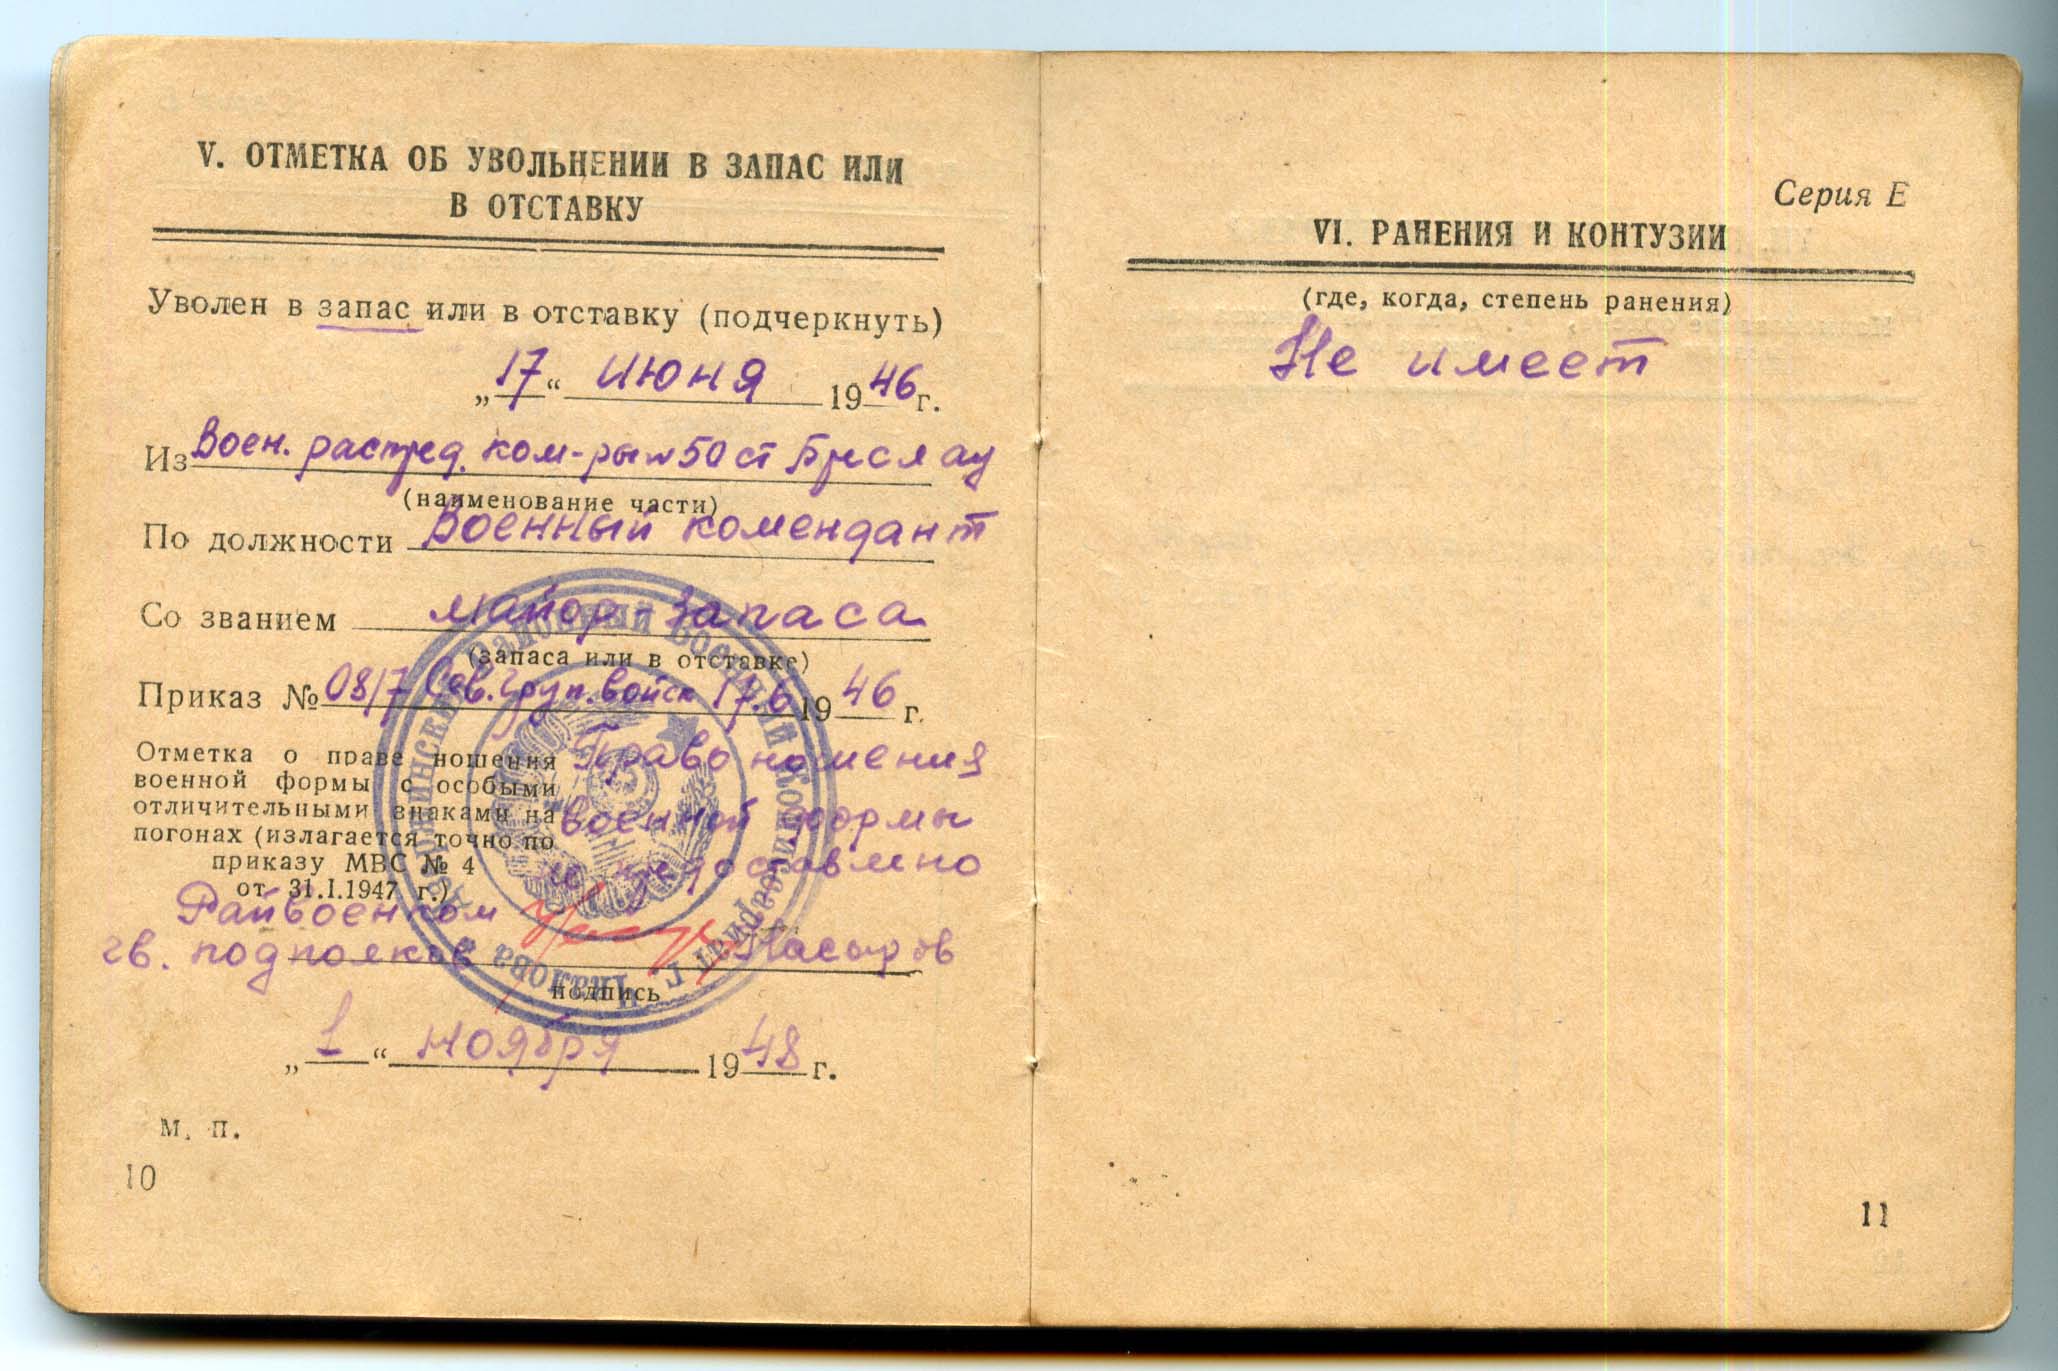 V. ОТМЕТКА ОБ УВОЛЬНЕНИИ В ЗАПАС ИЛИ
В ОТСТАВКУ
Уволен в запас или в отставку (подчеркнуть)
„17“ июня 1946 г.
Из Воен. распред. ком-ры №50 ст Бреслау
(наименование части)
По должности Военный комендант
Со званием майор запаса
(запаса или в отставке)
Приказ № 08/7 Сев. груп. войск 17.6 1946 г.
Отметка о праве ношения
военной формы с особыми
отличительными знаками на
погонах (излагается точно по
приказу МВС № 4
от 31.I.1947 г.)
Право ношения
военной формы
Райвоенком
гв. подполков
подпись
„1“ ноября 1948 г.
М. П.
10
Районный Военный Комиссариат г. Иванова
Серия Е
VI. РАНЕНИЯ И КОНТУЗИИ
(где, когда, степень ранения)
Не имеет
11